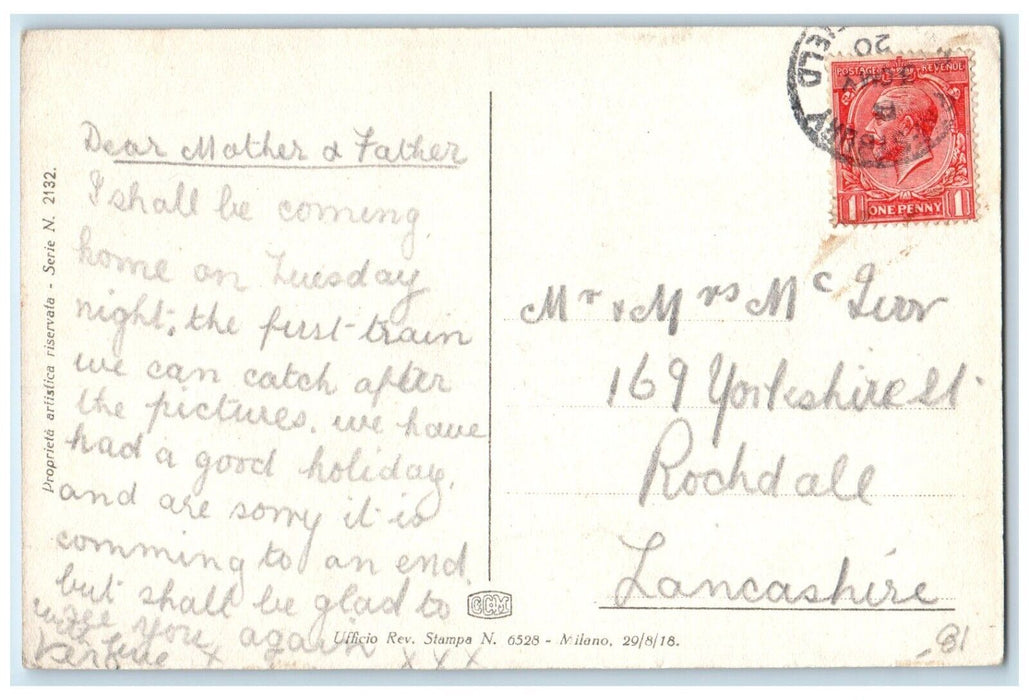 Dear Mother & Father
I shall be coming
home on Tuesday
night, the first train
we can catch after
the pictures. we have
had a good holiday.
and are sorry it is
comming to an end.
but shall be glad to
see you again
with love
x x x x
Mr & Mrs Mc
169 Yorkshire St
Rochdale
Lancashire
POSTAGE REVENUE
1 ONE PENNY 1
20
Proprietà artistica riservata - Serie N. 2132.
CCM
Ufficio Rev. Stampa N. 6528 - Milano, 29/8/18.